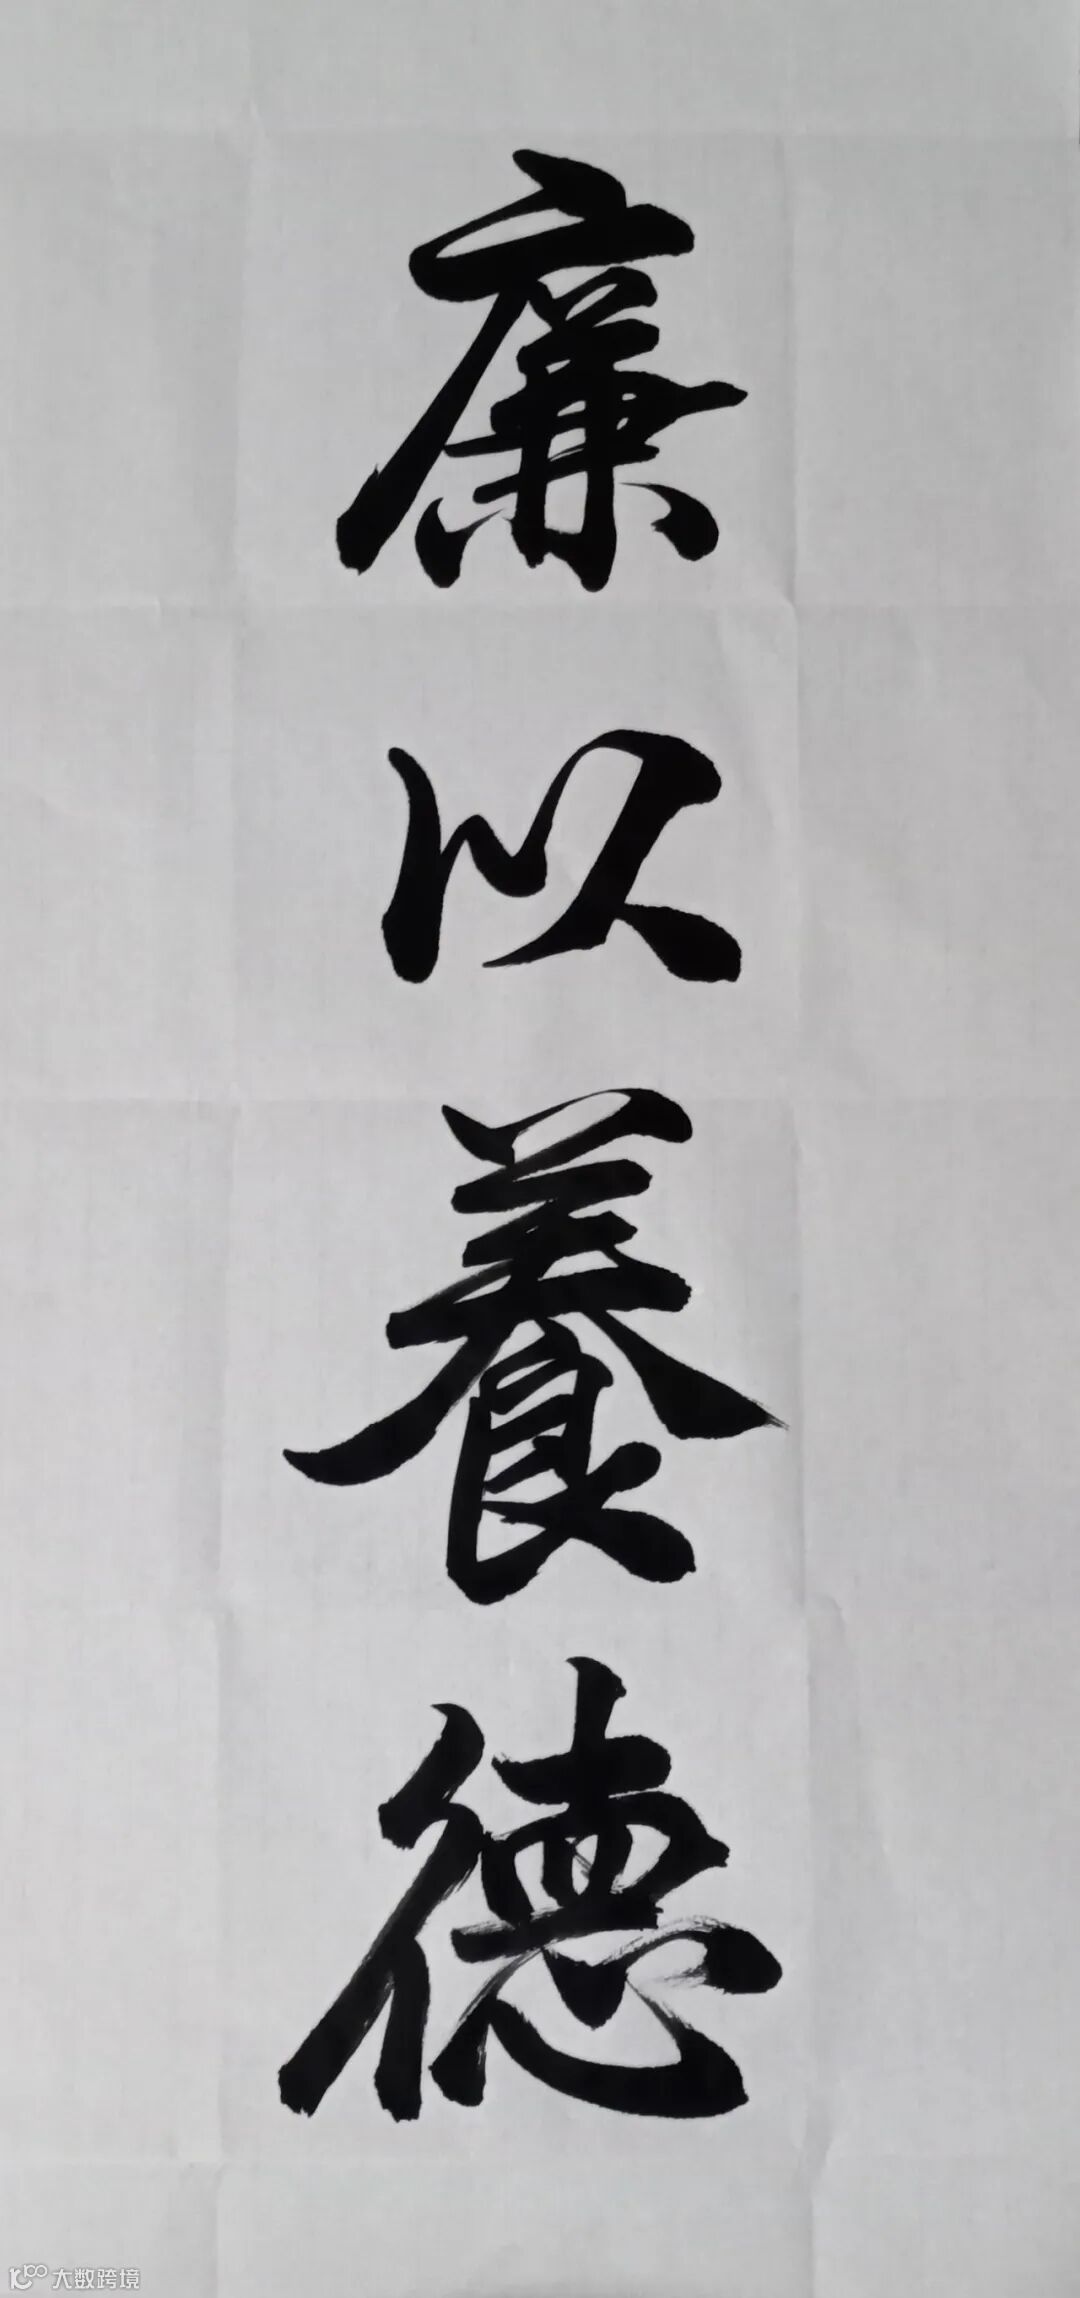 廉以養德
大数跨境